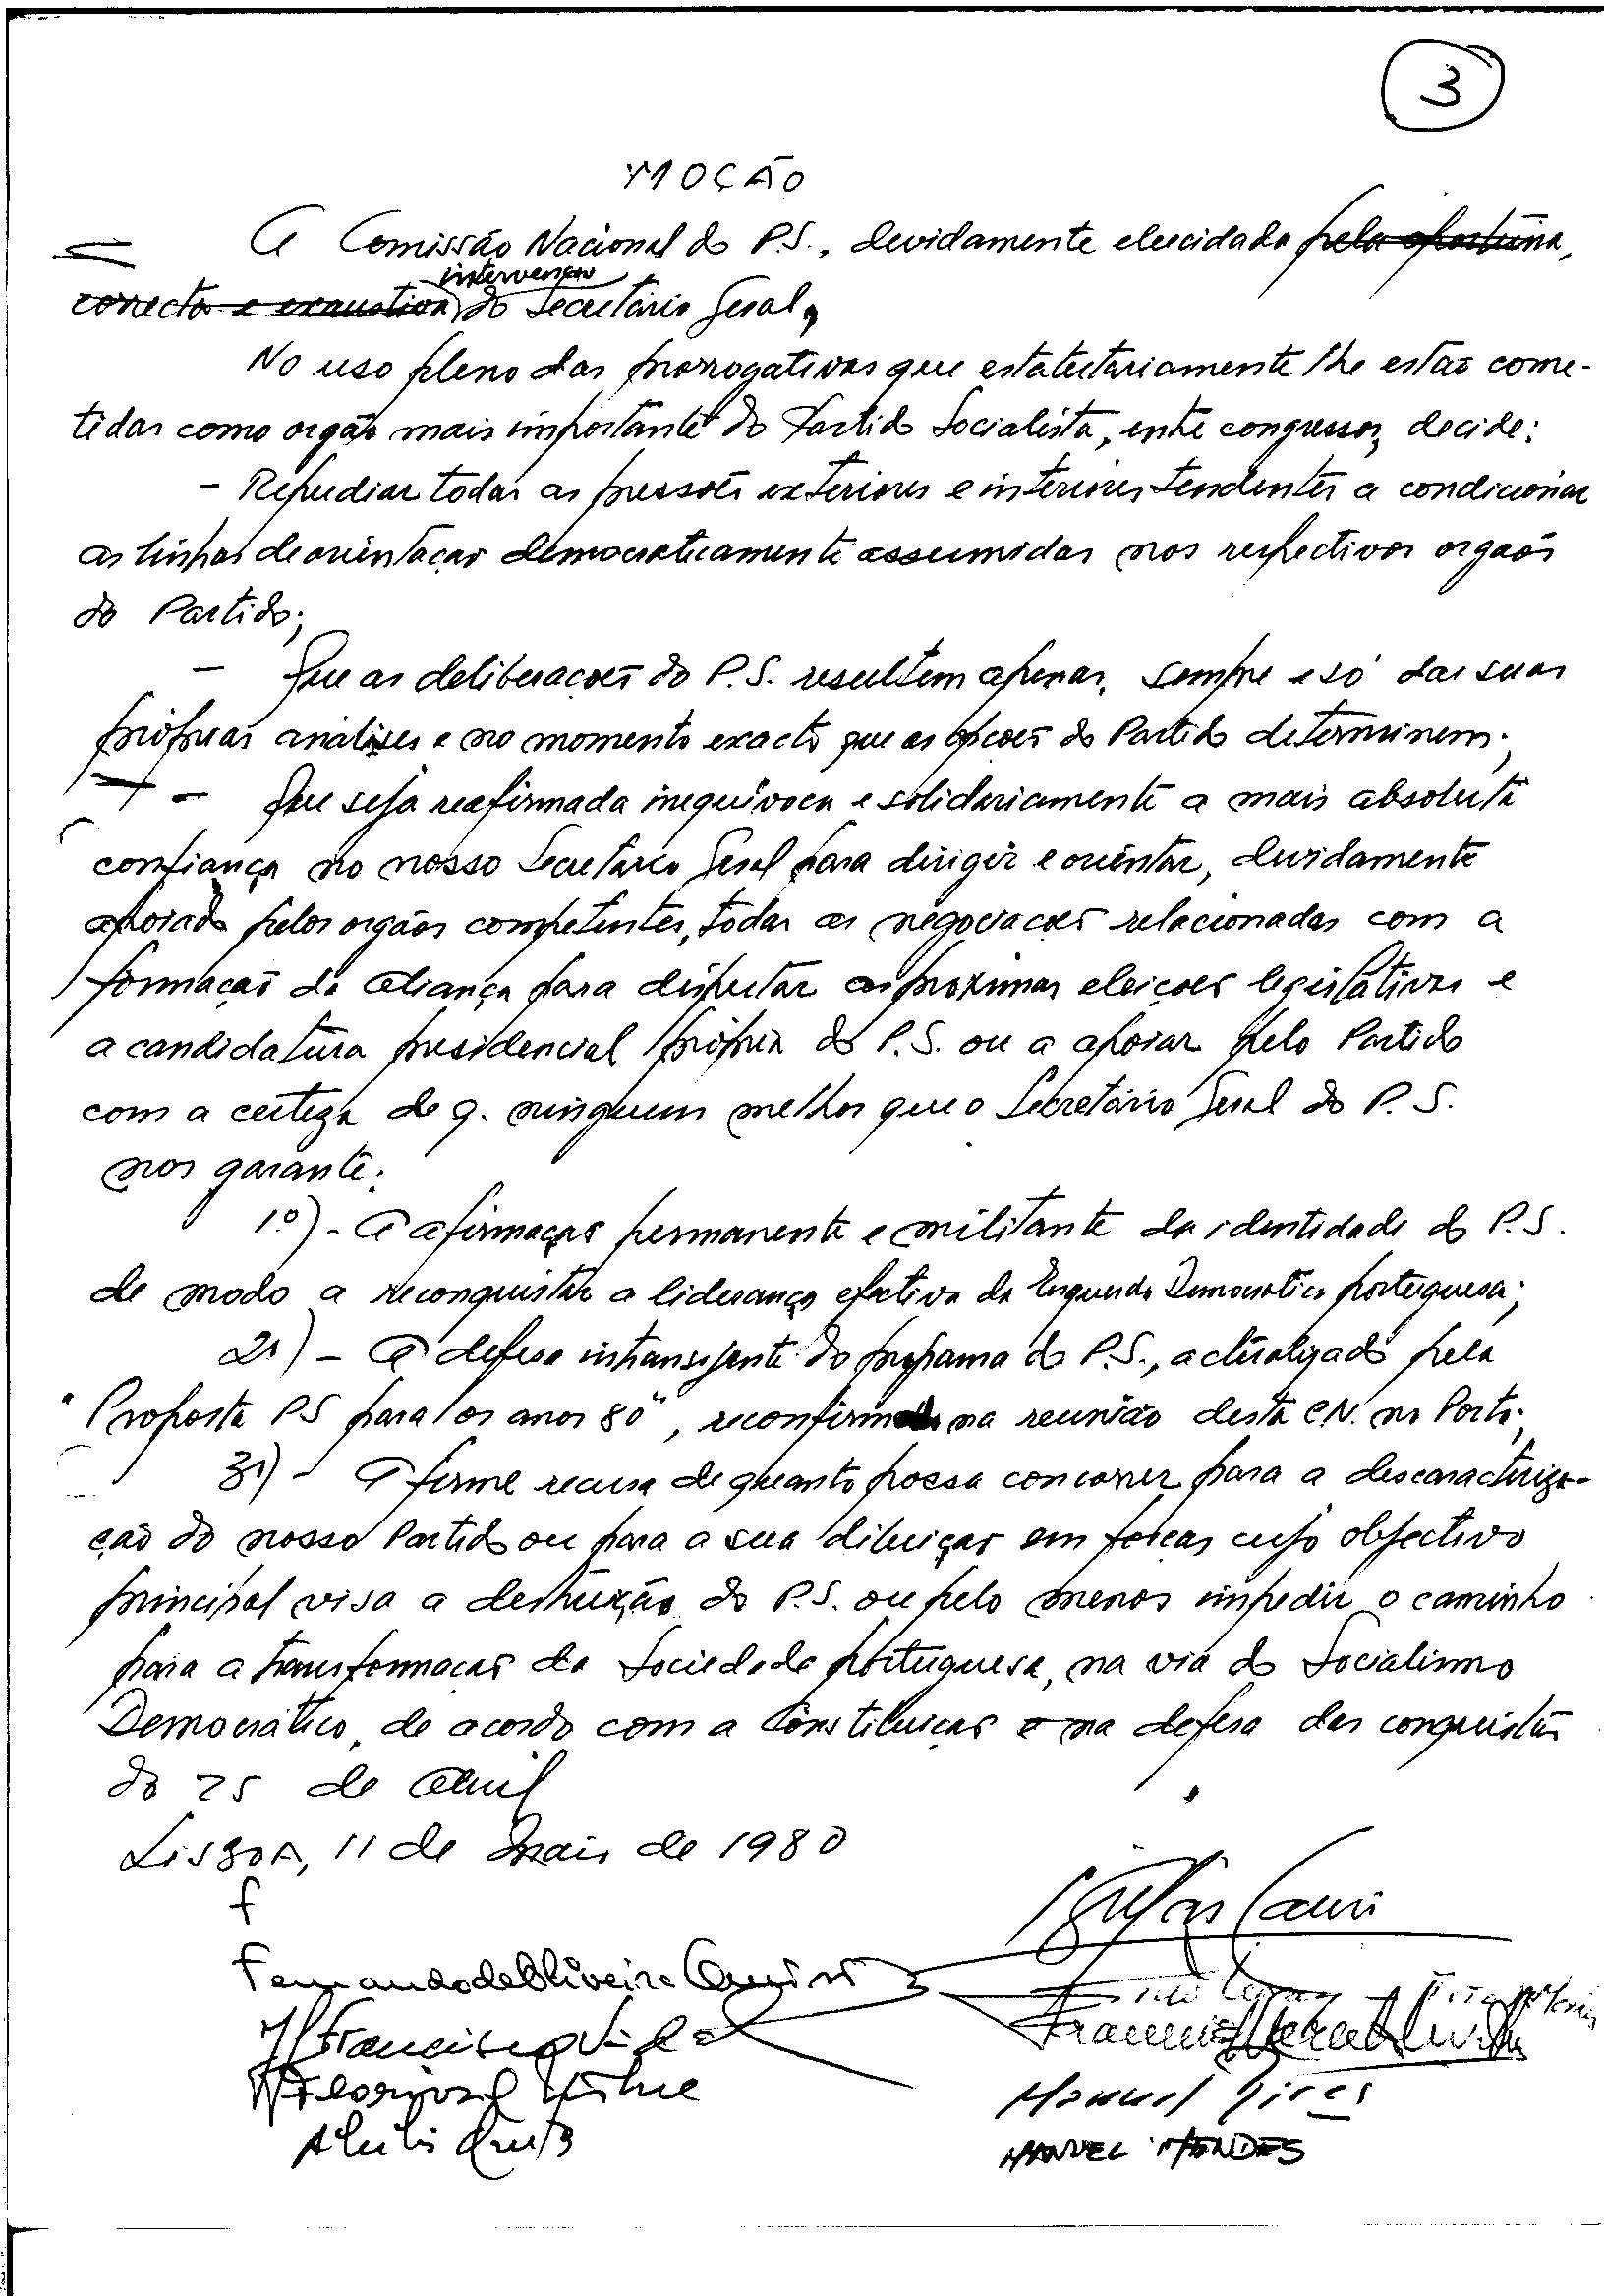 3
MOÇÃO
A Comissão Nacional do P.S., devidamente elucidada pela oportuna,
intervenção
correcta e exaustiva do Secretário Geral,
No uso pleno das prorrogativas que estatutariamente lhe estão come-
tidas como orgão mais importante do Partido Socialista, entre congressos, decide:
- Repudiar todas as pressões exteriores e interiores tendentes a condicionar
as linhas de orientação democraticamente assumidas nos respectivos orgãos
do Partido;
- Que as deliberações do P.S. resultem apenas, sempre e só das suas
próprias análises e no momento exacto que as opções do Partido determinem;
- Que seja reafirmada inequívoca e solidariamente a mais absoluta
confiança no nosso Secretário Geral para dirigir e orientar, devidamente
apoiado pelos orgãos competentes, todas as negociações relacionadas com a
formação da aliança para disputar as próximas eleições legislativas e
a candidatura presidencial própria do P.S. ou a apoiar pelo Partido
com a certeza de q. ninguem melhor que o Secretário Geral do P.S.
nos garante:
1º) - A afirmação permanente e militante da identidade do P.S.
de modo a reconquistar a liderança efectiva da Esquerda Democrática portuguesa;
2º) - A defesa intransigente do programa do P.S., actualizado pela
"Proposta PS para os anos 80", reconfirmada na reunião desta C.N. no Porto;
3º) - A firme recusa de quanto possa concorrer para a descaracteriza-
ção do nosso Partido ou para a sua diluição em forças cujo objectivo
principal visa a destruição do P.S. ou pelo menos impedir o caminho
para a transformação da Sociedade portuguesa, na via do Socialismo
Democrático, de acordo com a Constituição e na defesa das conquistas
do 25 de Abril
Lisboa, 11 de Maio de 1980
Fernando de Oliveira
Francisco
Manuel Pires
MANUEL MENDES